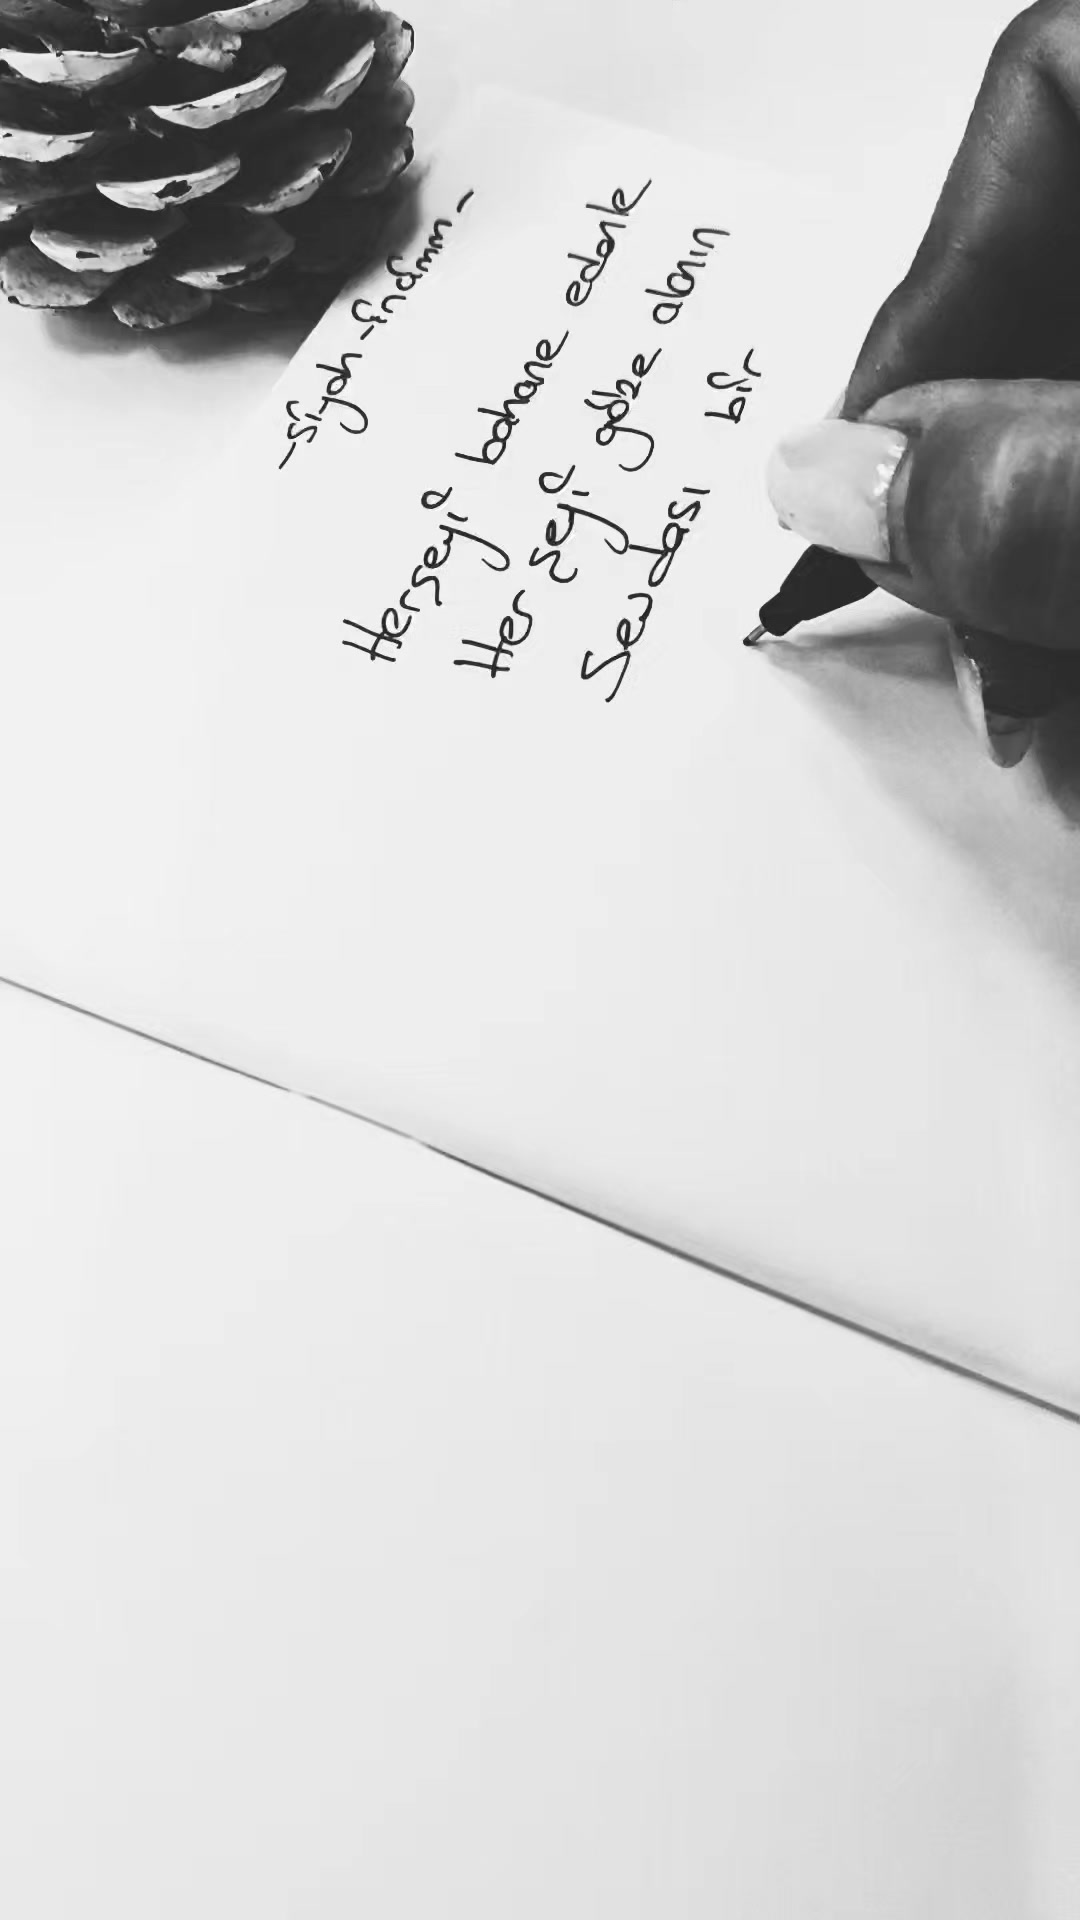 -siyah-inâmm-
Herşeyi bahane edenle
Her şeyi göze alanın
Sevdası bir